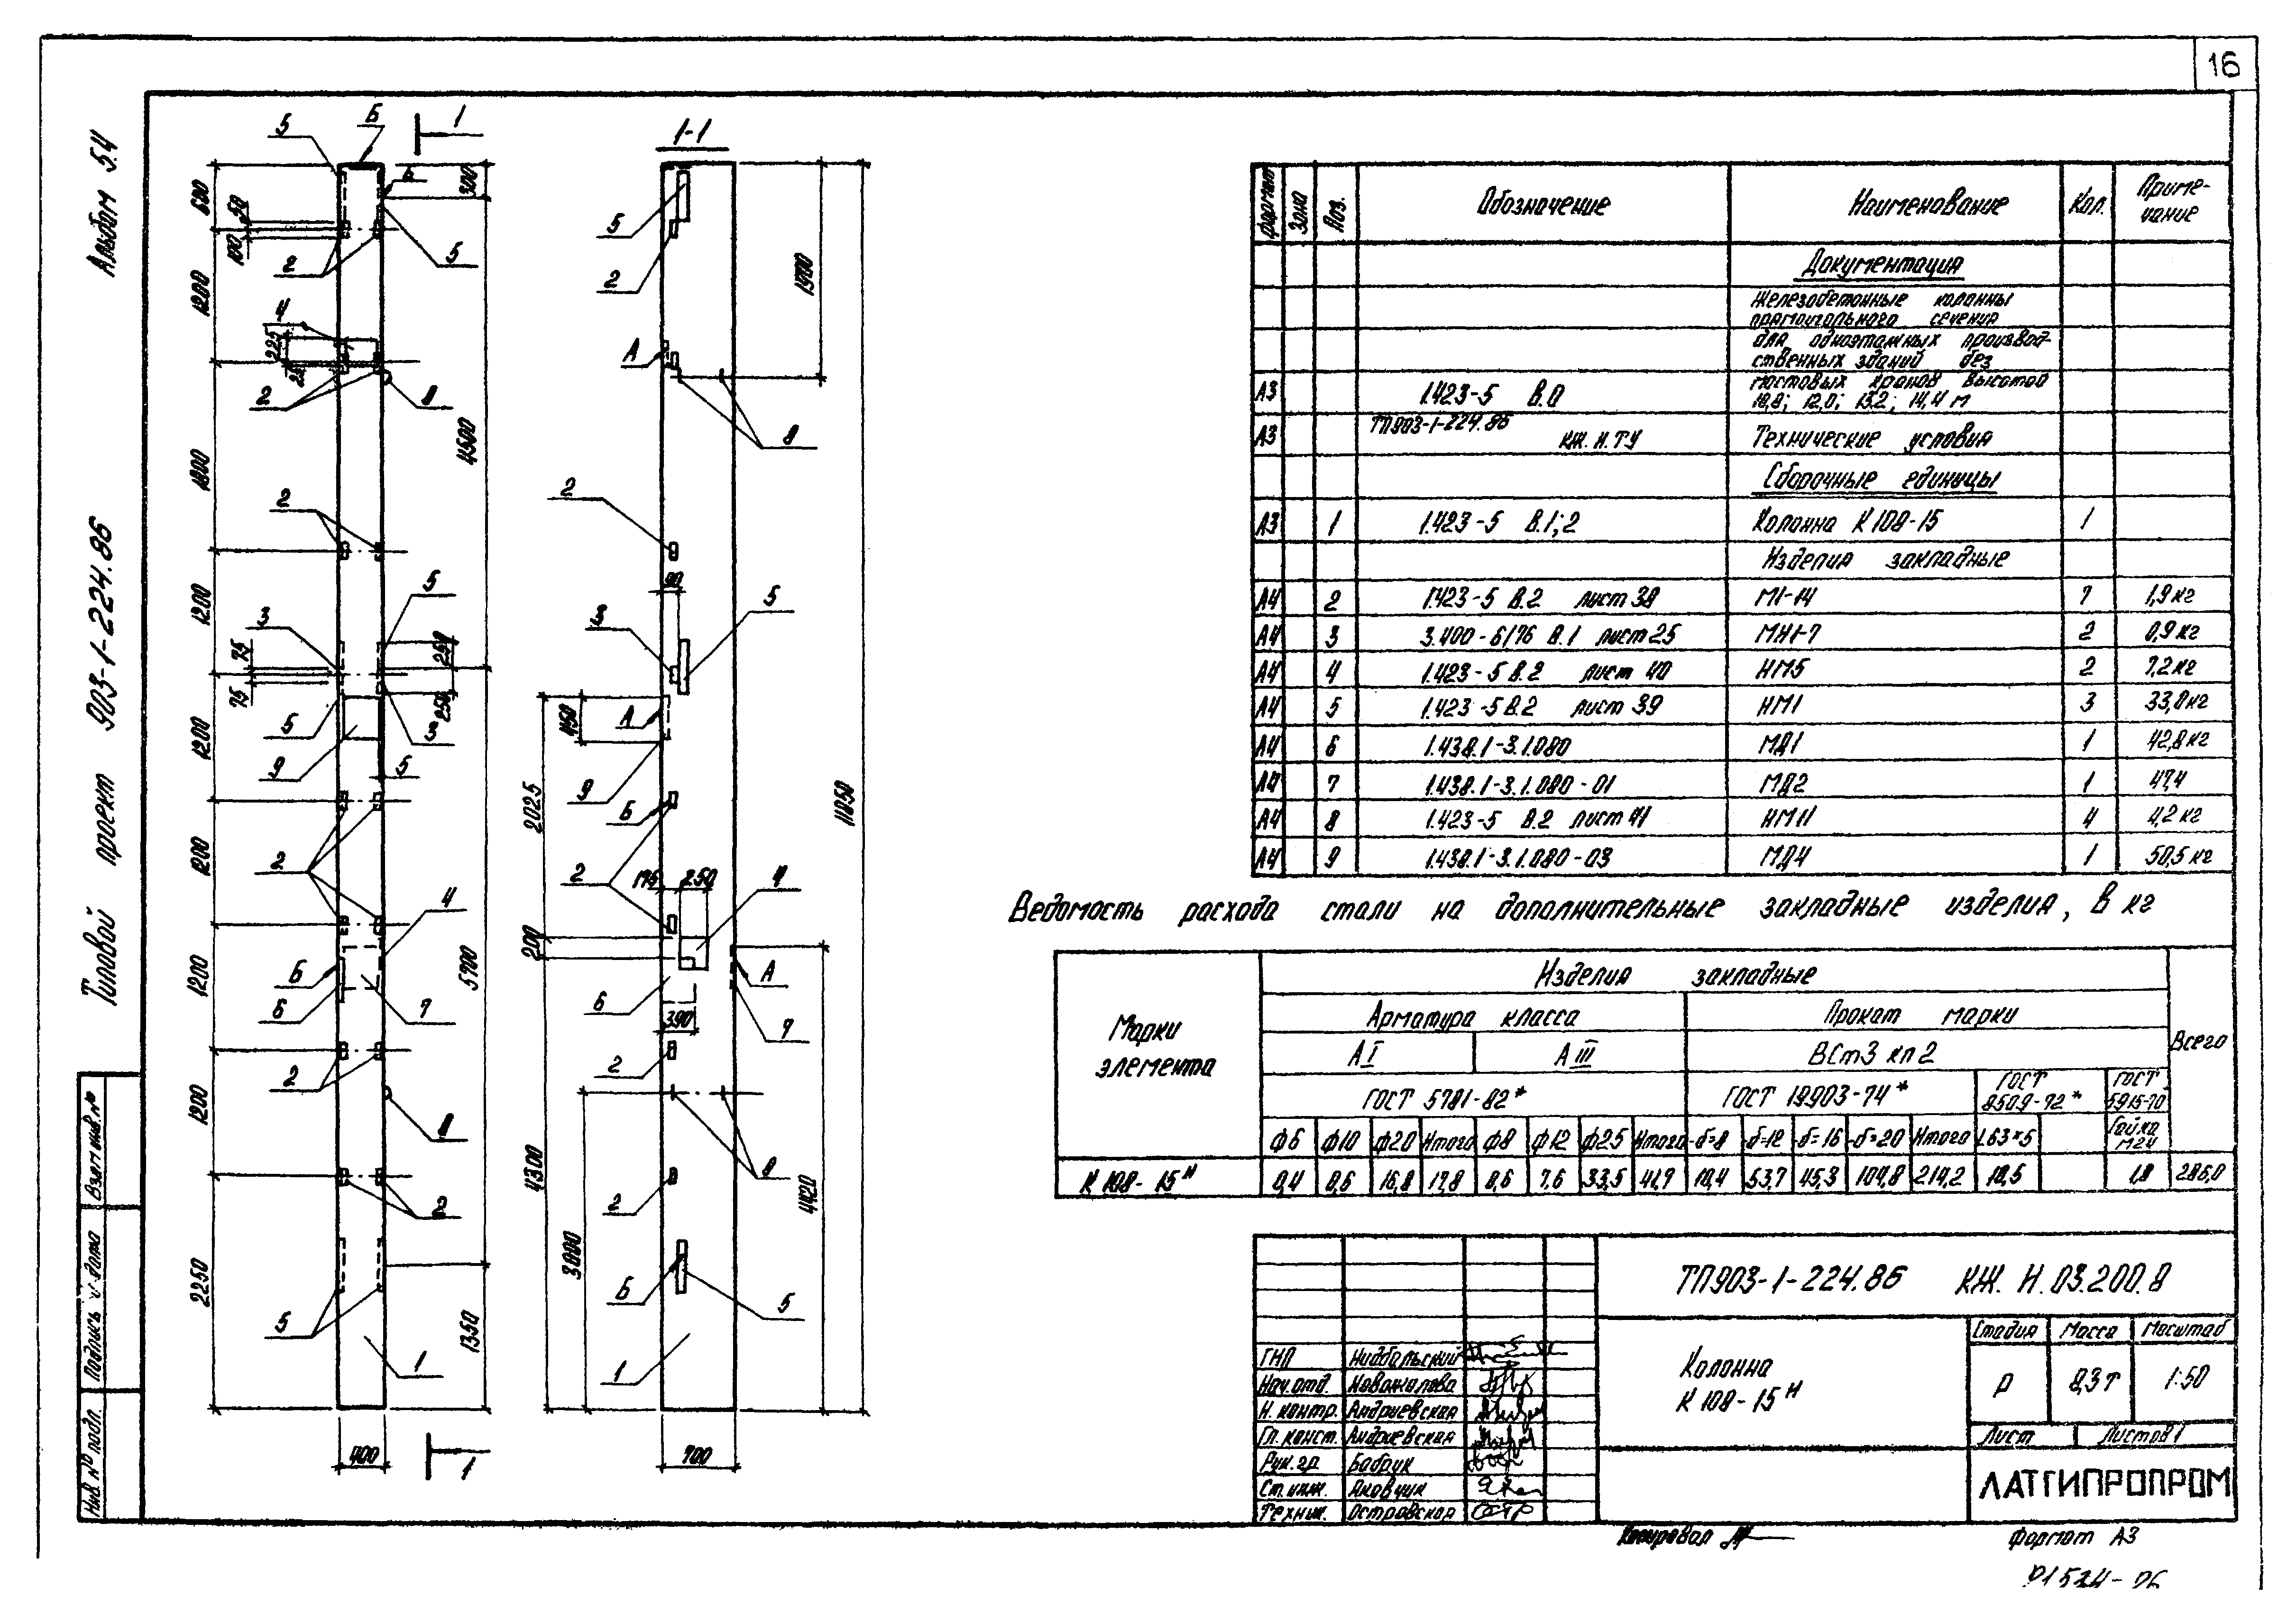 16
Альбом 5.4
Типовой проект 903-1-224.86
Взам инв. №
Подпись и дата
Инв. № подл.
5
Б
1
600
50
100
1200
1800
1200
1200
1200
1200
1200
2250
2
4
225
25
2
8
300
5
4500
2
5
3
75
75
250
250
5
9
3
5
2
4
Б
6
7
5700
2
8
2
5
1
1350
400
1
1-1
5
2
А
1900
8
2
90
3
5
А
450
9
Б
2025
2
175
250
4
200
6
390
А
7
2
4300
3000
8
2
Б
5
1
4420
11050
700
Формат
Зона
Поз.
Обозначение
Наименование
Кол.
Приме-
чание
Документация
Железобетонные колонны
прямоугольного сечения
для одноэтажных производ-
ственных зданий без
А3 1.423-5 В.0 мостовых кранов высотой
10,8; 12,0; 13.2; 14,4 м
А3 ТП903-1-224.86 КЖ.И.ТУ Технические условия
Сборочные единицы
А3 1 1.423-5 В.1;2 Колонна К108-15 1
Изделия закладные
А4 2 1.423-5 В.2 лист 38 М1-14 1,9 кг
А4 3 3.400-6/76 В.1 лист 25 МН1-7 2 0,9 кг
А4 4 1.423-5 В.2 лист 40 НМ5 2 7,2 кг
А4 5 1.423-5 В.2 лист 39 НМ1 3 33,8 кг
А4 6 1.438.1-3.1.080 МД1 1 42,8 кг
А4 7 1.438.1-3.1.080-01 МД2 1 47,4
А4 8 1.423-5 В.2 лист 41 НМ11 4 4,2 кг
А4 9 1.438.1-3.1.080-03 МД4 1 50,5 кг
Ведомость расхода стали на дополнительные закладные изделия, в кг
Марки
элемента
Изделия закладные
Всего
Арматура класса
Прокат марки
А I
А III
ВСт3 кп2
ГОСТ 5781-82*
ГОСТ 19903-74*
ГОСТ
8509-72*
ГОСТ
5915-70
ф6 ф10 ф20 Итого ф8 ф12 ф25 Итого -δ=8 -δ=12 -δ=16 -δ=20 Итого L63×5 Гайка
М24
К 108-15н 0,4 0,6 16,8 17,8 0,6 7,6 33,5 41,7 10,4 53,7 45,3 104,8 214,2 10,5 1,8 286,0
ТП903-1-224.86 КЖ. И.03.200.8
Колонна
К 108-15н
Стадия Масса Масштаб
Р 8,3т 1:50
Лист Листов 1
ЛАТГИПРОПРОМ
ГИП Нидбальский
Нач.отд. Новожилова
Н. контр. Андриевская
Гл. конст. Андриевская
Рук. гр. Бобрук
Ст. инж. Яковчик
Техник. Островская
Копировал
Формат А3